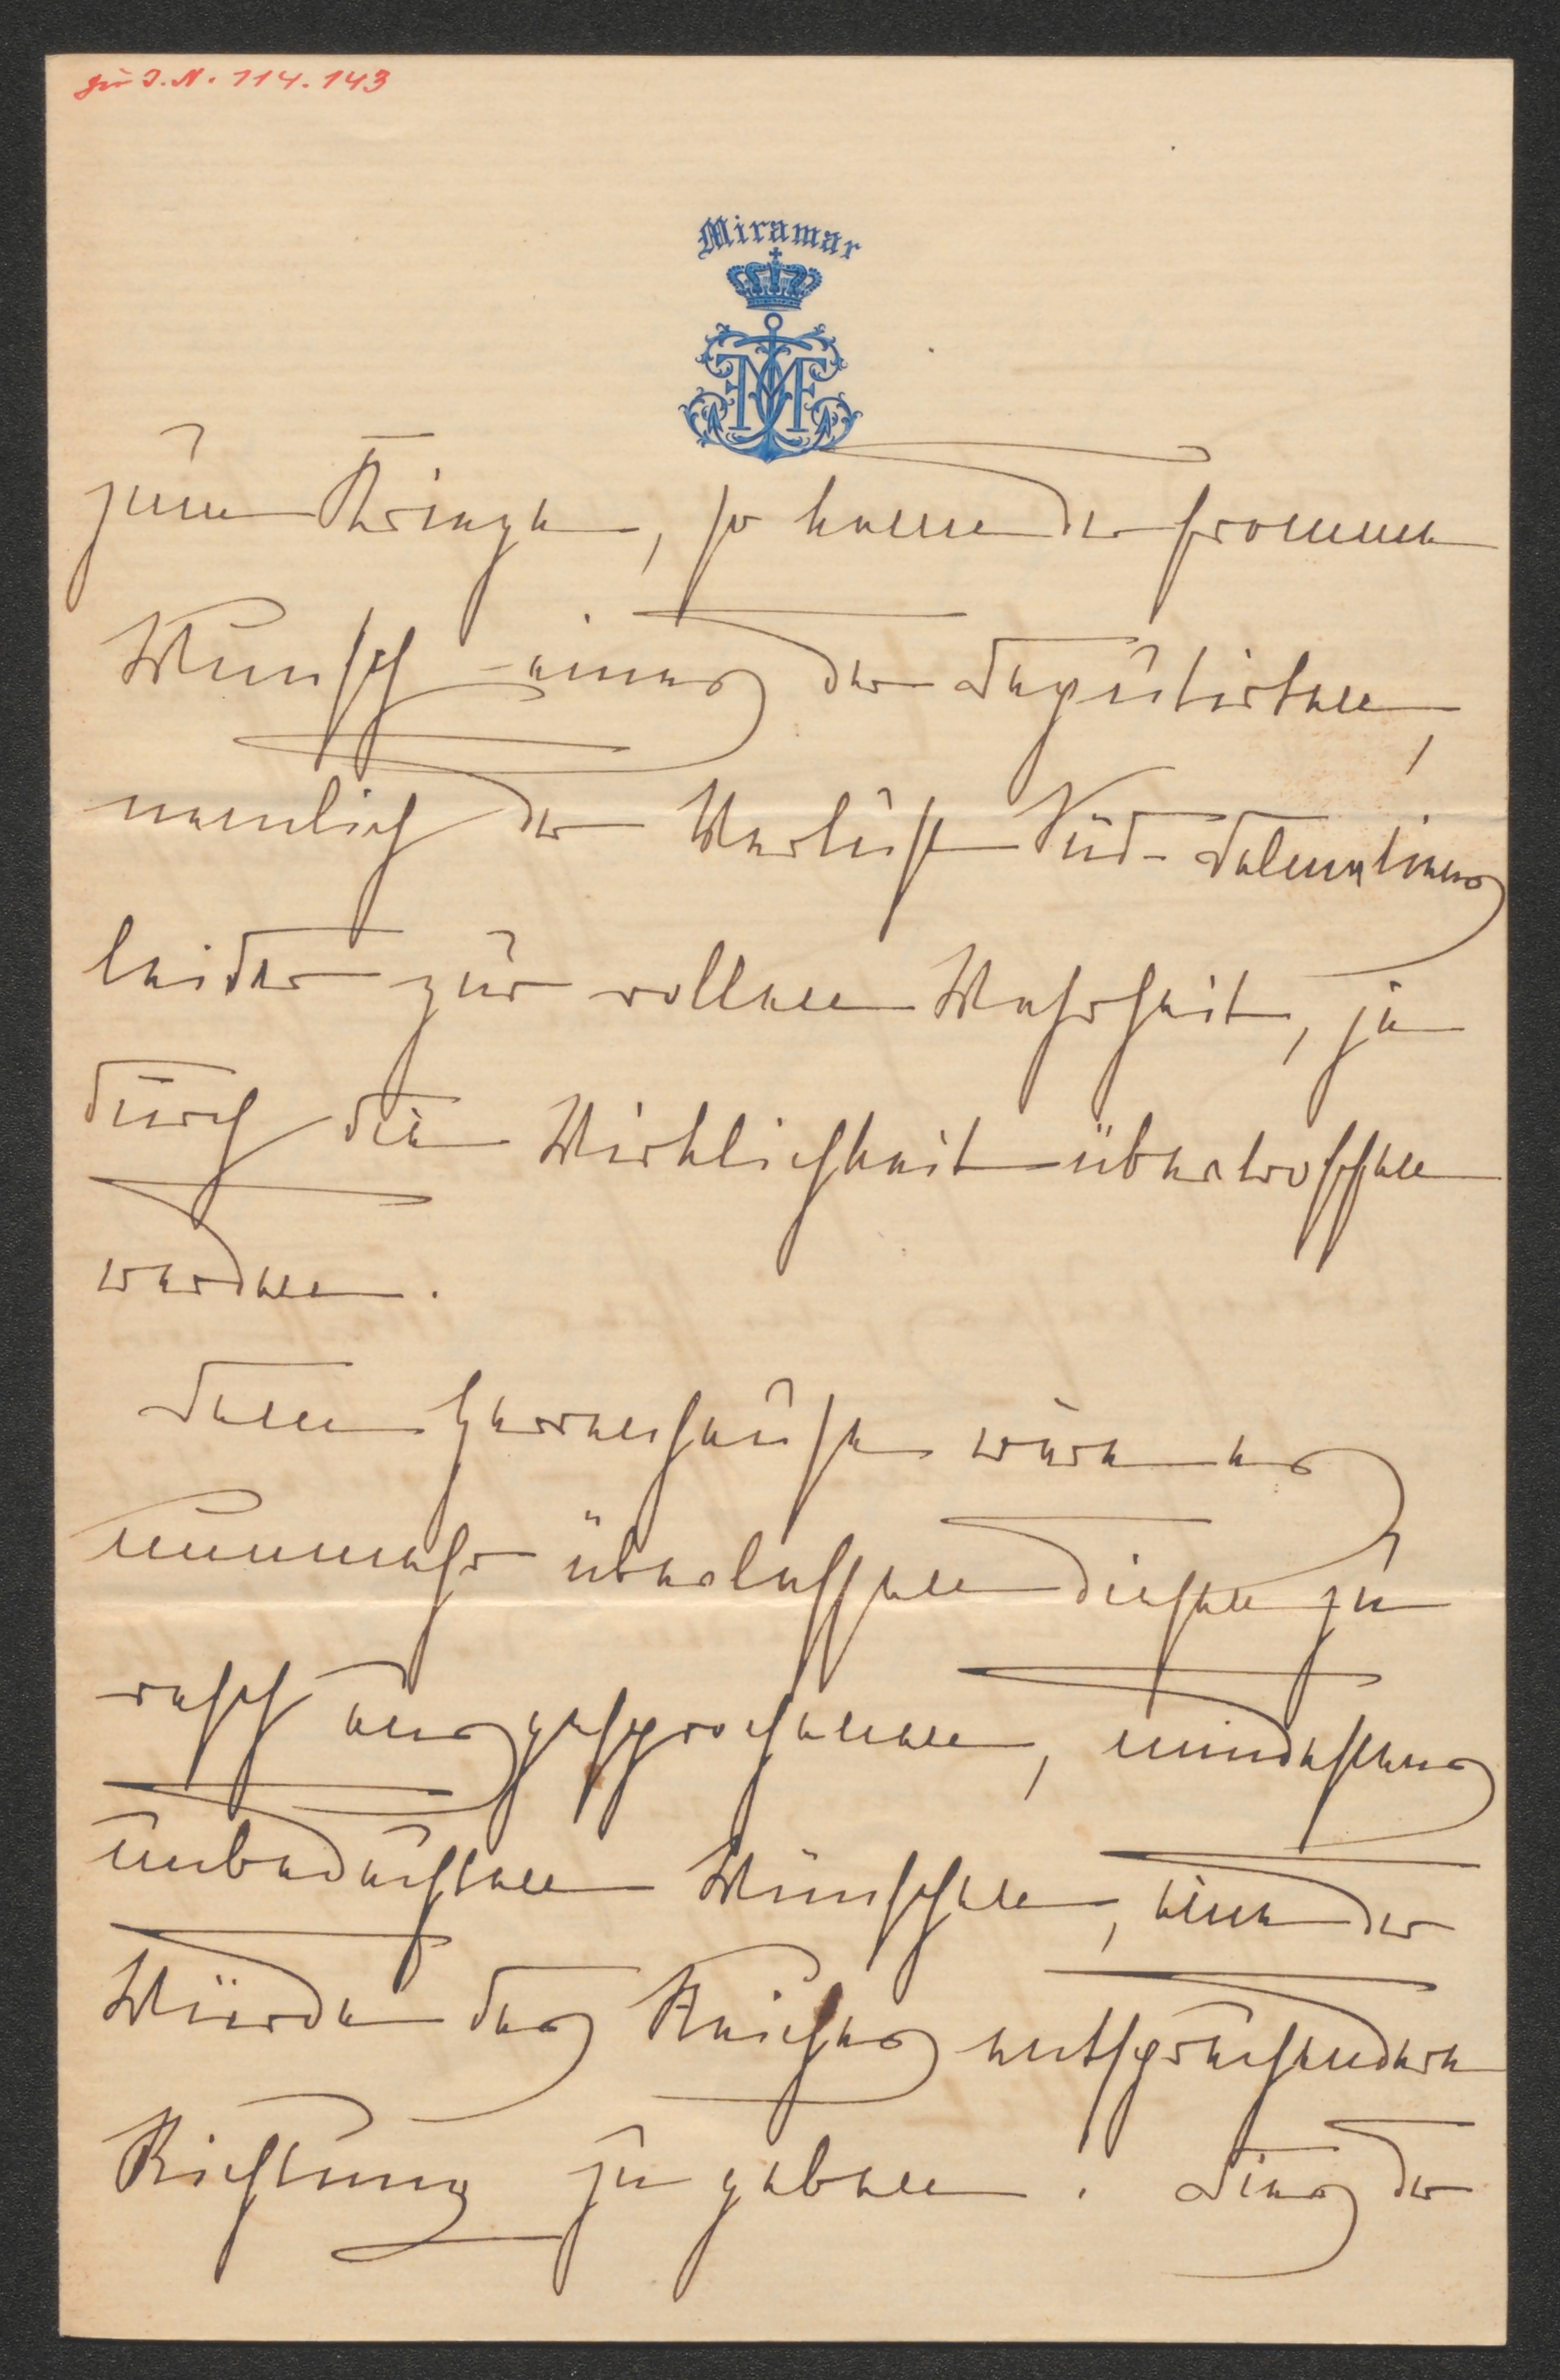 zu I.N. 114.143
Miramar
zum Kriege, so kann der fromme
Wunsch eines der Deputirten,
nemlich der Verlust Süd-Dalmatiens
leider zur vollen Wahrheit, ja
durch die Wirklichkeit übertroffen
werden.
Dem Herrenhause wäre es
nunmehr überlassen diesen zu
rasch ausgesprochenen, mindestens
unbedachten Wünschen, eine der
Würde des Reiches entsprechendere
Richtung zu geben. Dies der